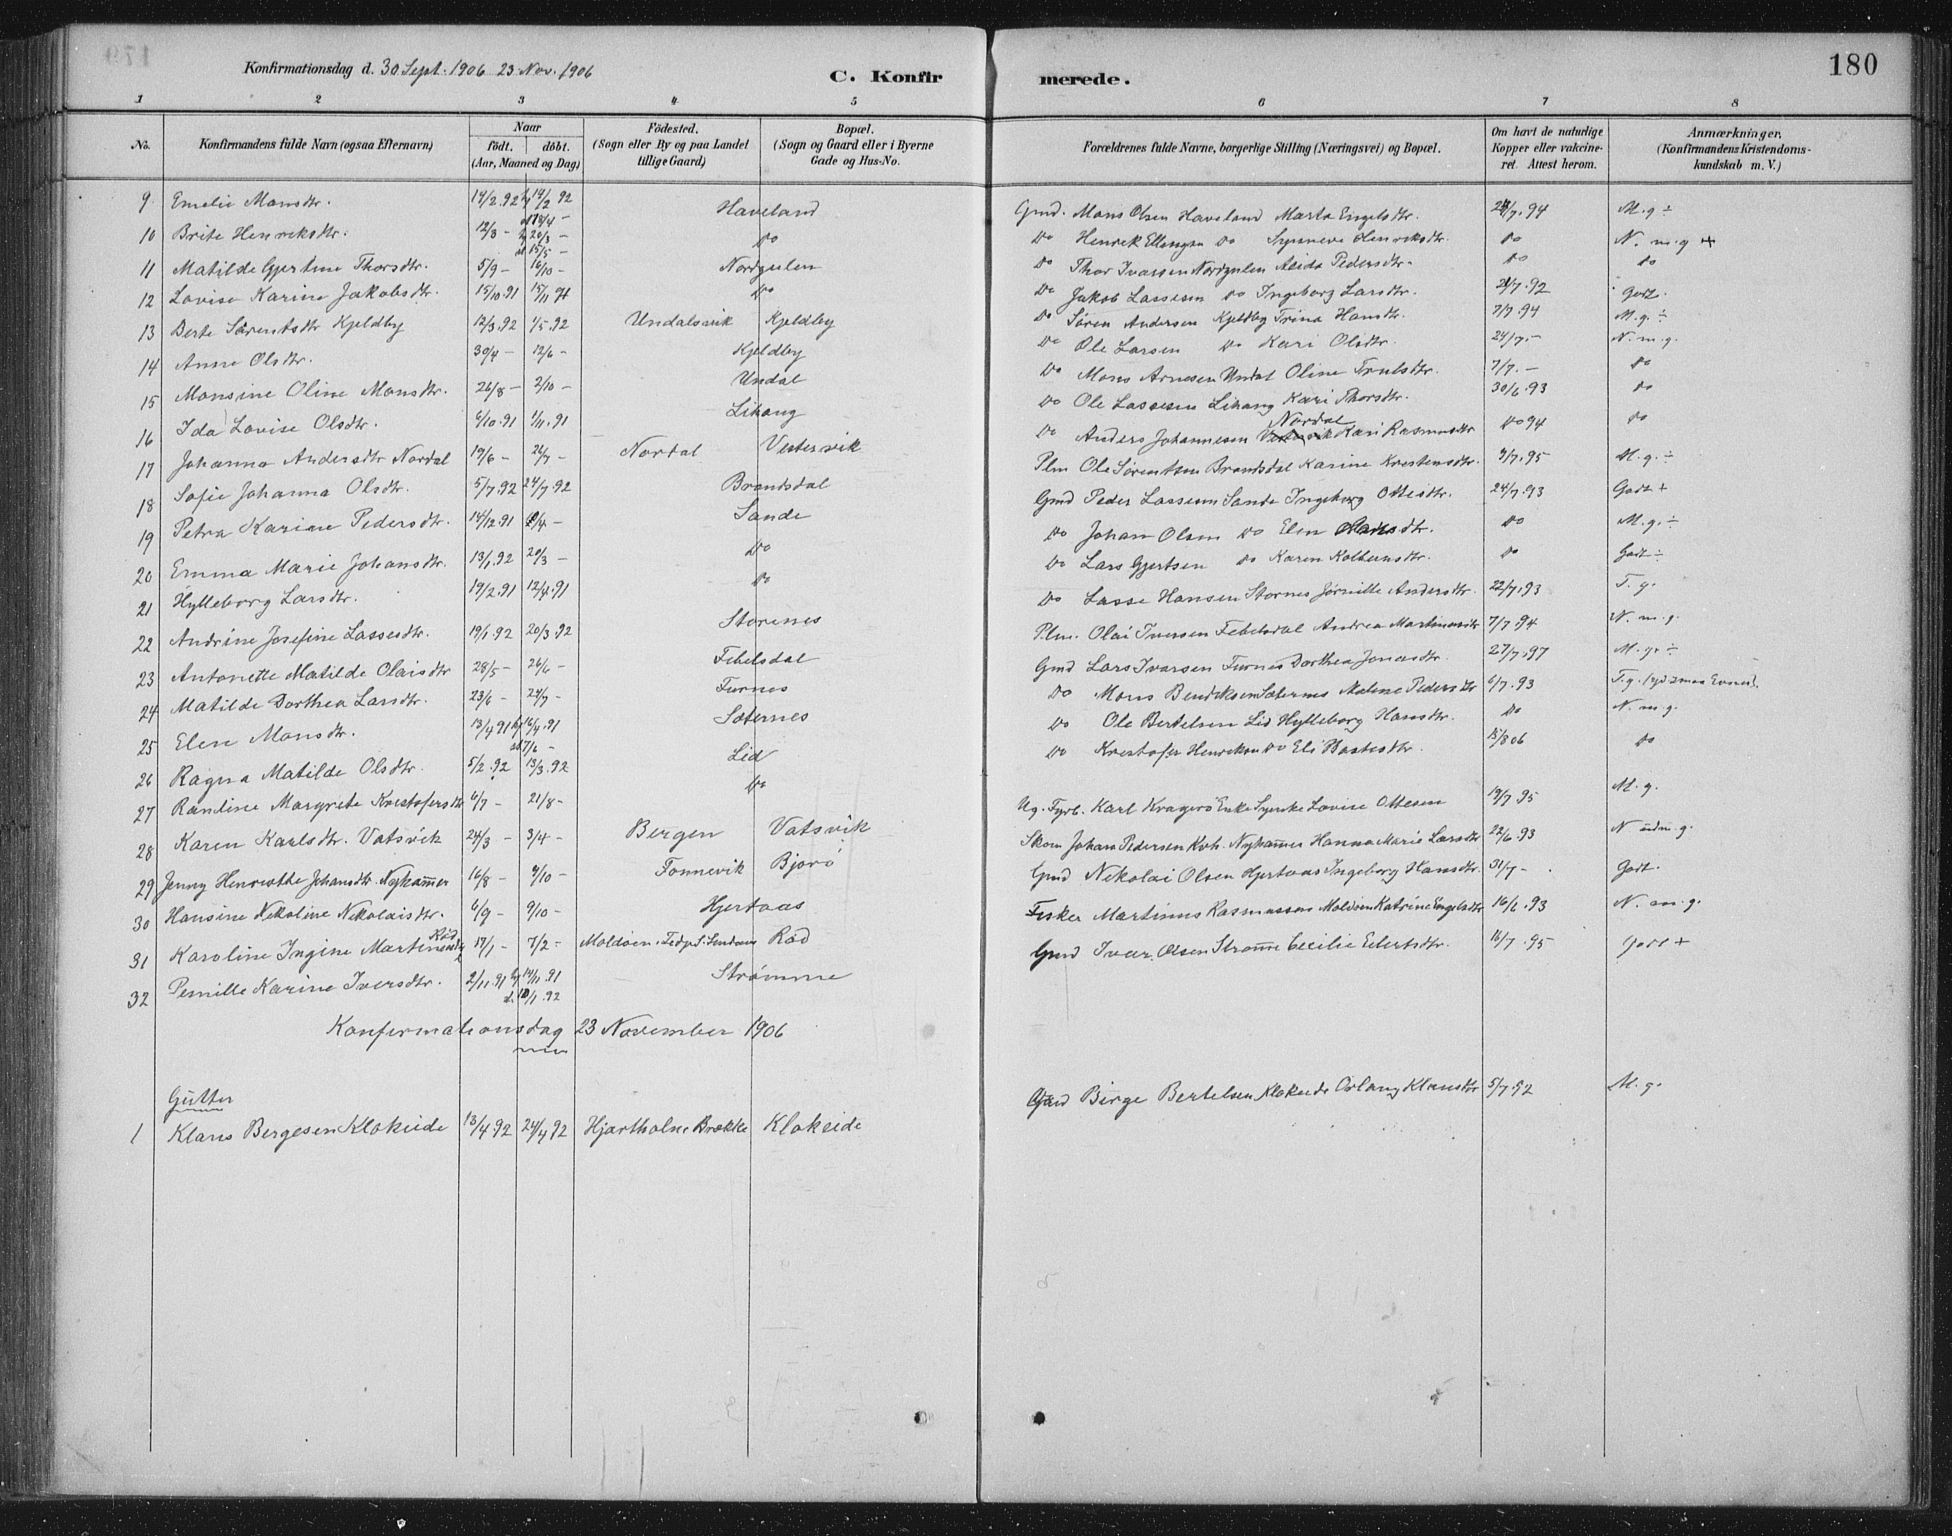 Konfirmationsdag d. 30 Sept. 1906 23 Nov. 1906
C. Konfirmerede.
180
1 2 3 4 5 6 7 8
No.
Konfirmandens fulde Navn (ogsaa Efternavn)
Naar
födt. döbt.
(Aar, Maaned og Dag)
Födested.
(Sogn eller By og paa Landet
tillige Gaard)
Bopæl.
(Sogn og Gaard eller i Byerne
Gade og Hus-No.
Forældrenes fulde Navne, borgerlige Stilling (Næringsvei) og Bopæl.
Om havt de naturlige
Kopper eller vakcine-
ret. Attest herom.
Anmærkninger.
(Konfirmandens Kristendoms-
kundskab m. V.)
9 Emelie Monsdtr. 14/2.92 14/2 92 Haveland Gmd. Mons Olsen Haveland Marta Engelsdtr. 24/7.94 M.g ÷
10 Brite Henreksdtr. 12/3 – 20/3 – 15/5 – Do Do Henrek Ellengsen Do Synneve Henreksdtr. Do N. m. g +
11 Matilde Gjertine Thorsdtr. 5/9 – 16/10 – Nordgulen Do Thor Ivarsen Nordgulen Alida Pedersdtr. Do Do
12 Lovise Karine Jakobsdtr. 15/10.91 15/11 91 Do Do Jakob Lassesen Do Ingeborg Larsdtr. 21/7.92 Godt.
13 Berte Sörentsdtr Kjeldby 12/3.92 1/5.92 Undalsvik Kjeldby Do Sören Andersen Kjeldby Trina Hansdtr. 7/7.94 M.g. ÷
14 Anne Olsdtr. 30/4 – 12/6 – Kjeldby Do Ole Larsen Do Kari Olsdtr. 24/7.– N. m. g.
15 Monsine Oline Monsdtr. 26/8 – 2/10 – Undal Do Mons Arnesen Undal Oline Trulsdtr. 7/7.– Do
16 Ida Lovise Olsdtr. 6/10.91 1/11.91 Lihaug Do Ole Lassesen Lihaug Kari Thorsdtr. 30/6.93 Do
17 Johanna Andersdtr Nordal 19/6 – 26/7 – Nordal Vestervik Do Anders Johannesen Nordal Kari Rasmusdtr Do 94 Do
18 Sofie Johanna Olsdtr. 5/7.92 24/7.92 Brandsdal Plm Ole Sörentsen Brandsdal Karine Krestensdtr. 9/7.95 M.g. ÷
19 Petra Karine Pedersdtr. 14/12.91 /4 – Sande Gmd Peder Lassesen Sande Ingeborg Ottesdtr. 24/7.93 Godt +
20 Emma Marie Johansdtr. 13/1.92 20/3 – Do Do Johan Olsen Do Elen dtr. Do M.g. ÷
21 Hylleborg Larsdtr. 19/2.91 12/4.91 Do Do Lars Gjertsen Do Karen Kolbeensdtr. Do Godt ÷
22 Andrine Josefine Lassesdtr. 19/1.92 20/3.92 Storenes Do Lasse Hansen Stornes Jörnille Andersdtr. 22/7.93 T. g.
23 Antonette Matilde Olaisdtr 28/5 – 26/6 – Febelsdal Plm. Olai Iversen Febelsdal Andrea Martinusdtr 7/7.94 N. m. g.
24 Matilde Dorthea Larsdtr. 23/6 – 24/7 – Furnes Gmd Lars Ivarsen Furnes Dorthea Jonasdtr. 27/7.97 M.g. ÷
25 Elen Monsdtr. 13/4 91 16/4.91 7/6 – Sæternes Do Mons Bendiksen Sæternes Malene Pedersdtr 6/7.93 T.g. (yd smaa Evner).
26 Ragna Matilde Olsdtr. 5/2.92 13/3.92 Lid Do Ole Bertelsen Lid Hylleborg Hansdtr. Do N. m. g.
27 Ranline Margrete Krestofersdtr 6/7 – 21/8 – Do Do Krestofer Henreksen Do Eli Bastesdtr. 15/8 06 Do
28 Karen Karlsdtr. Vatsvik 24/3 – 3/4 – Bergen Vatsvik Ug. Fyrb. Karl Kragerö Enke Synike Lovise Ottesen 19/7.95 M. g.
29 Jenny Henreette Johansdtr. Nyhammer 16/8 – 9/10 – Fonnevik Bjorö Skom Johan Pedersen Nyhammer Hanna Marie Larsdtr 22/6.93 N udm. g.
30 Hansine Nikoline Nekolaisdtr. 6/9 – 9/10 – Hjertaas Gmd Nekolai Olsen Hjertaas Ingeborg Hansdtr. 31/7 – Godt.
31 Karoline Ingine Martinsdtr Röd 17/1 – 7/2 – Moldöen Röd Fesker Martinus Rasmussen Moldöen Katrine Engelsdtr 16/6.93 N. m. g.
32 Pernille Karine Iversdtr. 2/11.91 14/11.91 10/1.92 Strømme Gmd Ivar Olsen Stromme Cecilie Eilertsdtr. 16/7.95 Godt +
Konfirmationsdag 23 November 1906
Gutter
1 Klaus Bergesen Klokeide 13/4.92 24/4 92 Hjartholm Brække Klokeide Gmd Birge Bertelsen Klokeide Oslaug Klausdtr 5/7.92 M. g.